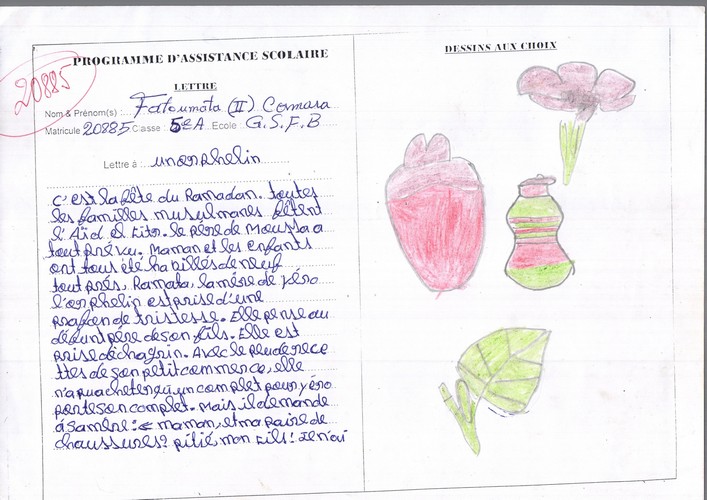 PROGRAMME D'ASSISTANCE SCOLAIRE
20885
LETTRE
Nom & Prénom(s) : Fatoumata (II) Camara
Matricule 20885 Classe : 5e A Ecole : G.S.F.B
Lettre à : un orphelin
C'est la fête du Ramadan. toutes
les familles musulmanes fêtent
l'Aïd el Fitr. le père de Moussa a
tout prévu. Maman et les enfants
ont tous été habillés de neuf
tout près, Ramata, la mère de yéro
l'orphelin est prise d'une
de tristesse. Elle pense au
défunt père de son fils. Elle est
prise de chagrin. Avec le peu de rece
ttes de son petit commerce, elle
n'a pu acheter qu'un complet pour yéro
porte son complet. Mais il demande
à sa mère : maman, et ma paire de
chaussures? pitié, mon fils! Je n'ai
DESSINS AUX CHOIX